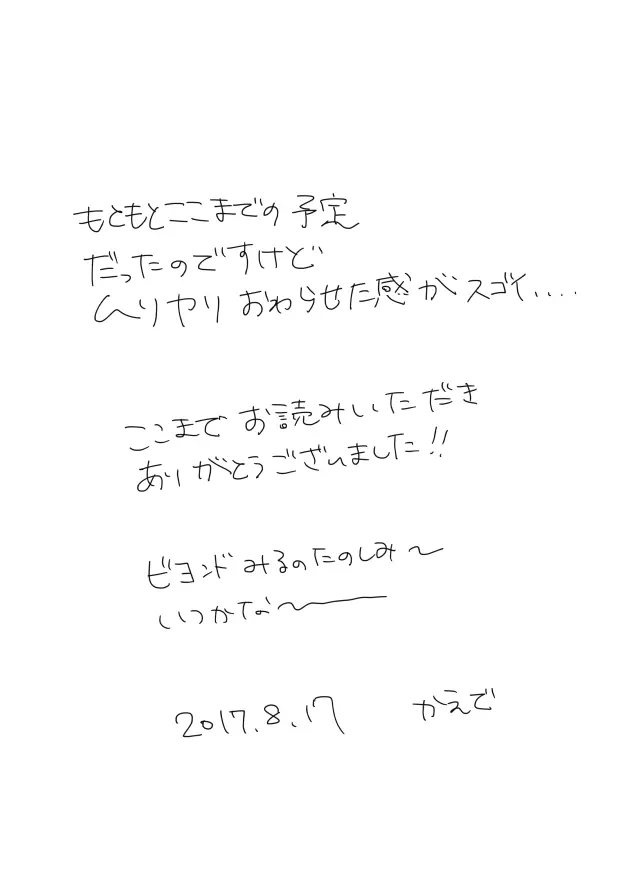 もともとここまでの予定
だったのですけど
ムリヤリおわらせた感がスゴイ....
ここまでお読みいただき
ありがとうございました!!
ビヨンドみるのたのしみ〜
いつかな〜──
2017.8.17 かえで